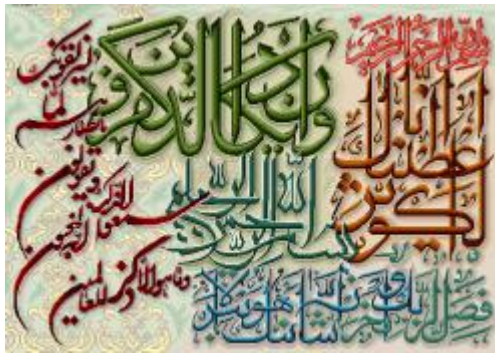 بسم الله الرحمن الرحيم
انا اعطيناك الكوثر
فصل لربك وانحر
ان شانئك هو الابتر
بسم الله الرحمن الرحيم
وان يكاد الذين كفروا
ليزلقونك
بابصارهم لما
سمعوا الذكر ويقولون
انه لمجنون
وما هو الا ذكر للعالمين